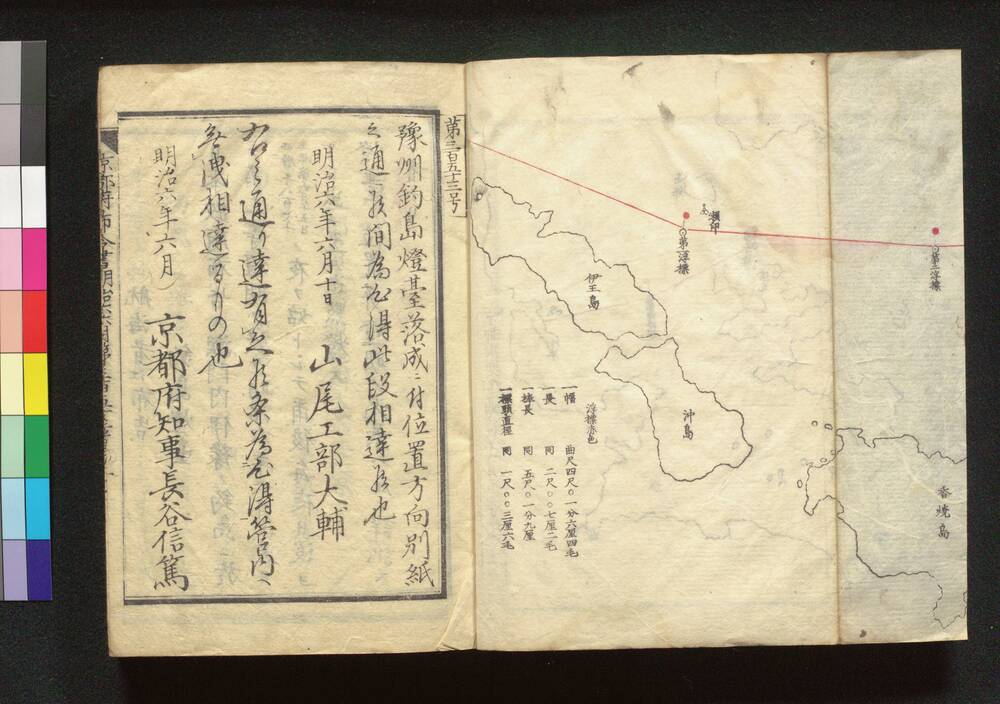 香焼島
第二浮標
瀬印
第一浮標
伊王島
沖島
浮標赤色
一幅 曲尺四尺〇一分六厘四毛
一畏 同 二尺〇〇七厘二毛
一棹長 同 五尺〇一分九厘
一標頭直徑 同 一尺〇〇三厘六毛
第三百五十三号
豫州釣島燈臺落成ニ付位置方向別紙
之通ニ候間為心得此段相達候也
明治六年六月十日 山尾工部大輔
右之通り達有之候条為心得管内ヘ
無洩相達るもの也
明治六年六月 京都府知事長谷信篤